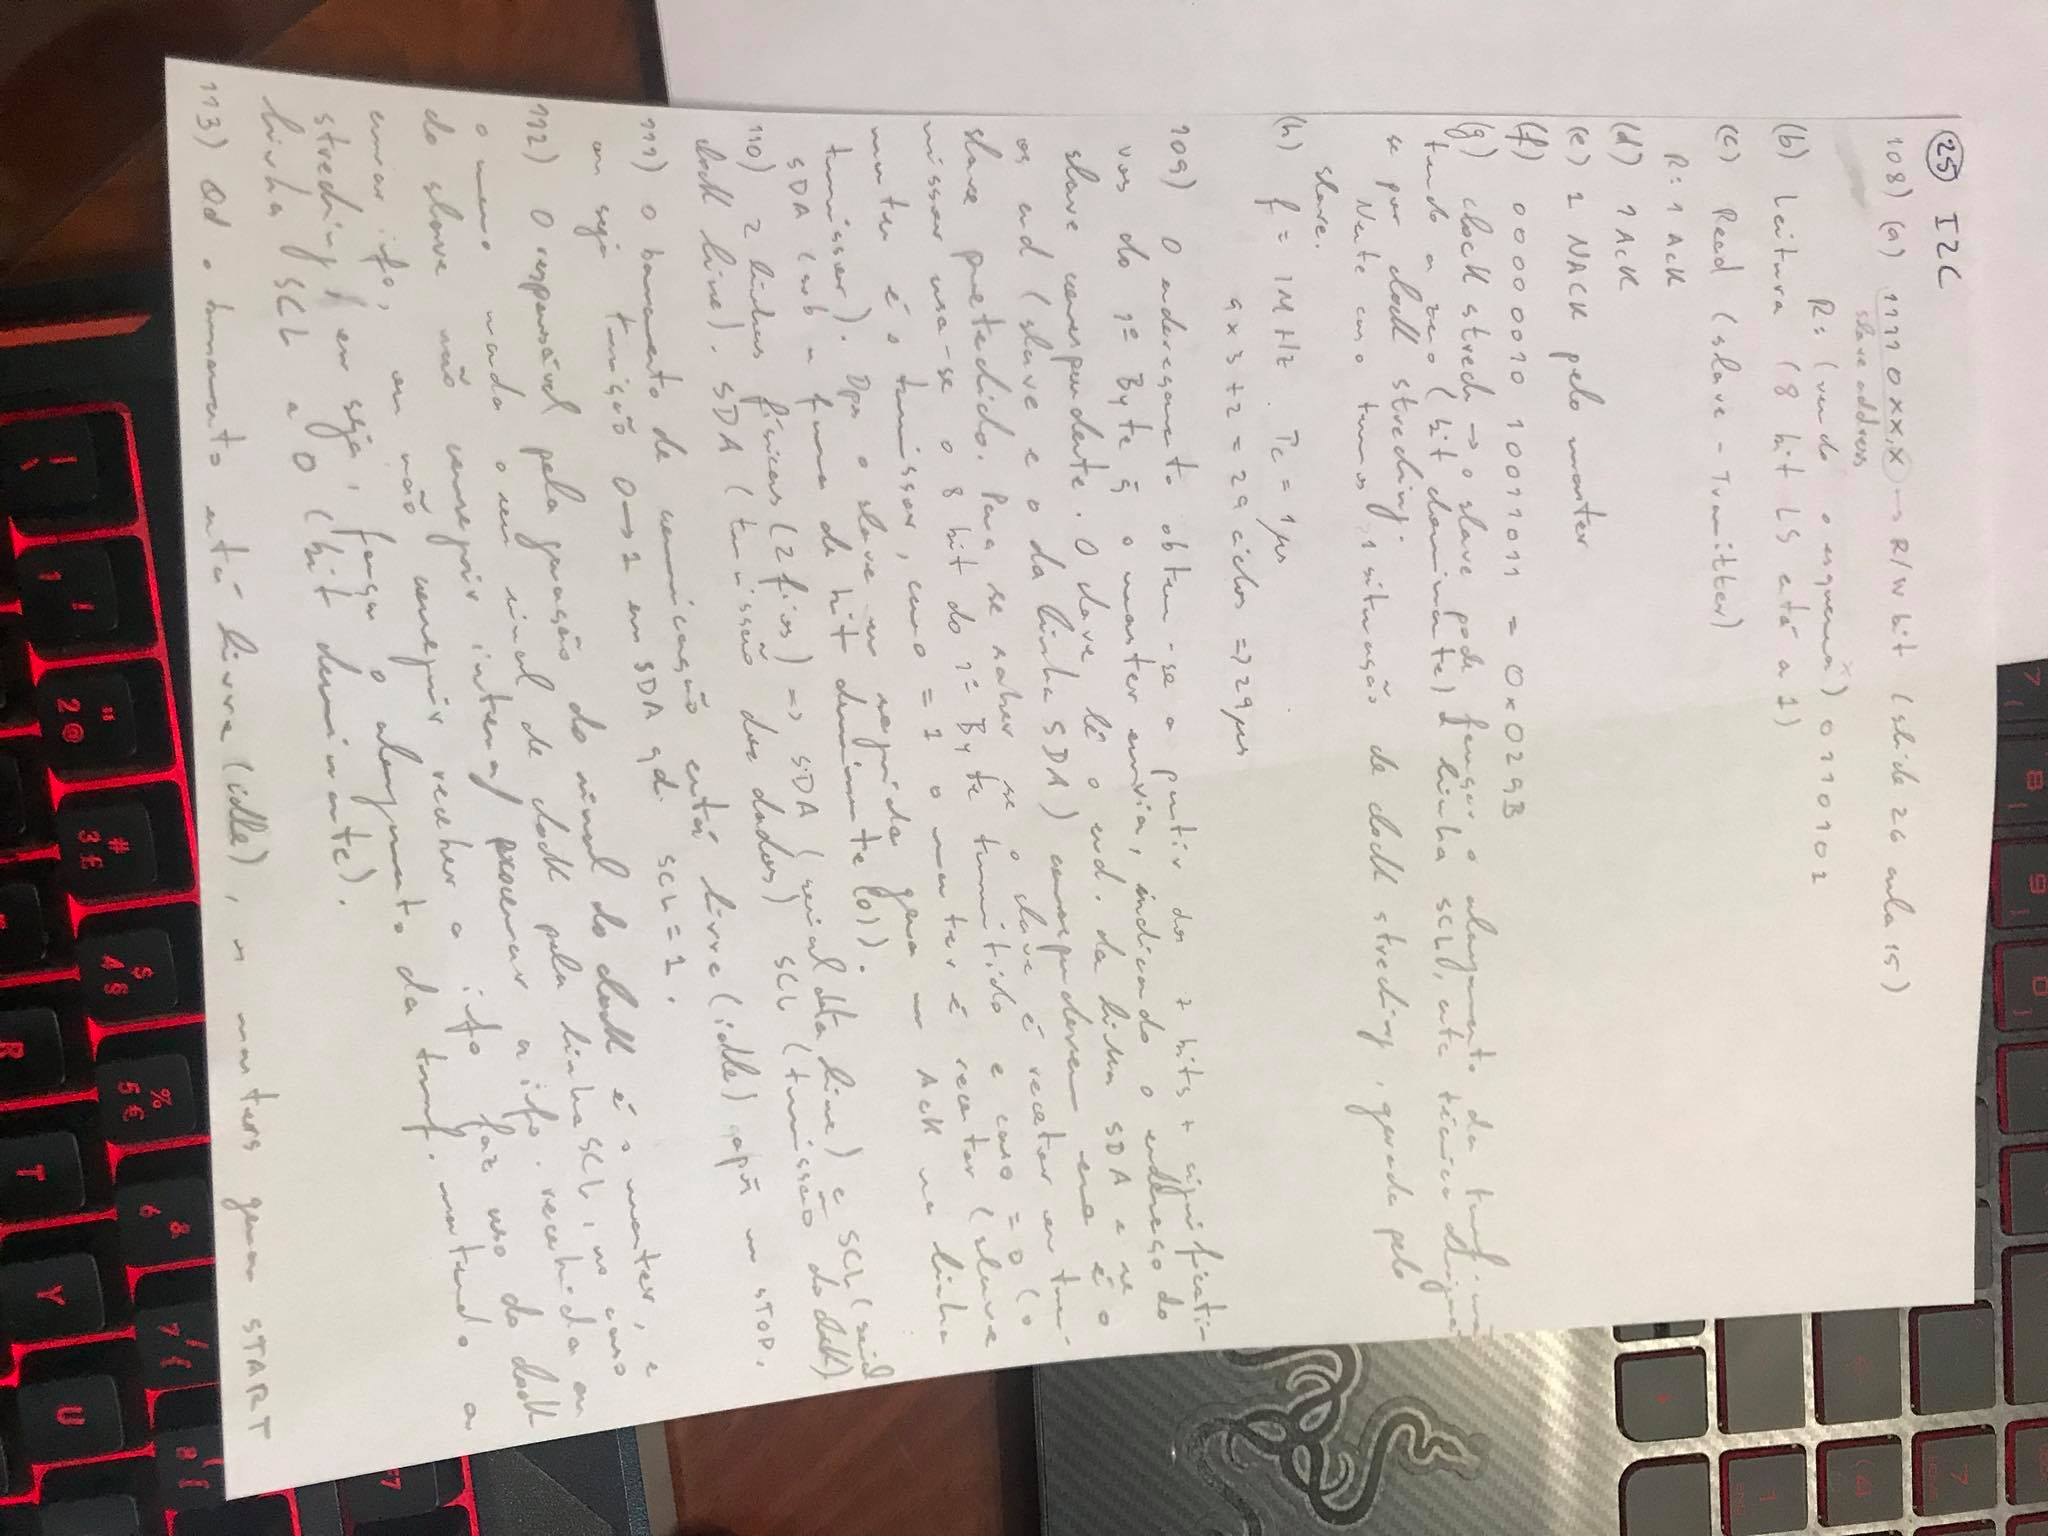 25 I2C
108) (a) 11110XX,X → R/W bit (slide 26 aula 15)
slave address
R: (vendo o esquema) 0110101
(b) Leitura (8 bit LS está a 1)
(c) Read (slave - Tramitter)
R: 1 Ack
(d) 1 Ack
(e) 1 NACK pelo master
(f) 00000010 10011011 = 0x029B
(g) clock strech → o slave pode forçar o alongamento da transf. man
tendo a zero (bit dominante) a linha SCL, esta técnica designa
se por clock streching.
Neste caso temos 1 situação de clock streching, gerada pelo
slave.
(h) f = 1MHz . Tc = 1µs
9x3+2 = 29 ciclos => 29µs
109) O endereçamento obtem-se a partir dos 7 bits + significati-
vos do 1º Byte q o master envia, indicando o endereço do
slave correspondente. O slave lê o end. da linha SDA e se
os end (slave e o da linha SDA) corresponderem esse é o
slave pretedido. Para se saber se o slave é recetor ou trans-
missor usa-se o 8 bit do 1º Byte tramitido e caso = 0 (o
master é o transmissor, caso = 1 o master é recetor (slave
transmissor). Dps o slave em seguida gera um Ack na linha
SDA (sob a forma de bit dominante (0)).
110) 2 linhas físicas (2 fios) => SDA (serial data line) e SCL (serial
clock line). SDA (tramissão dos dados) SCL (tramissão do clock).
111) O barramento de comunicação está livre (idle) após um STOP,
ou seja transição 0→1 em SDA qd. SCL = 1.
112) O responsável pela geração do sinal do clock é o master, e
o mesmo manda o seu sinal de clock pela linha SCL, no caso
do slave não conseguir processar a info. recebida ou
enviar info, ou não conseguir receber a info faz uso do clock
streching, ou seja, força o alongamento da transf. mantendo a
linha SCL a 0 (bit dominante).
113) Qd o barramento está livre (idle), os masters geram START
7 8 9 0
7
HOME
4
1
END
F7
! 1
" 2 @
# 3 £
$ 4 §
% 5 €
& 6
/ 7 {
( 8 [
R T Y U